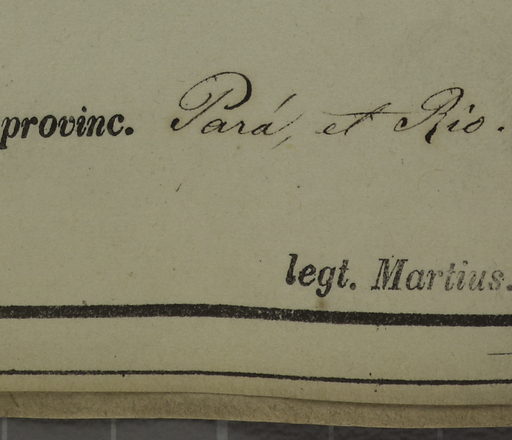 provinc. Pará, et Rio.
legt. Martius.